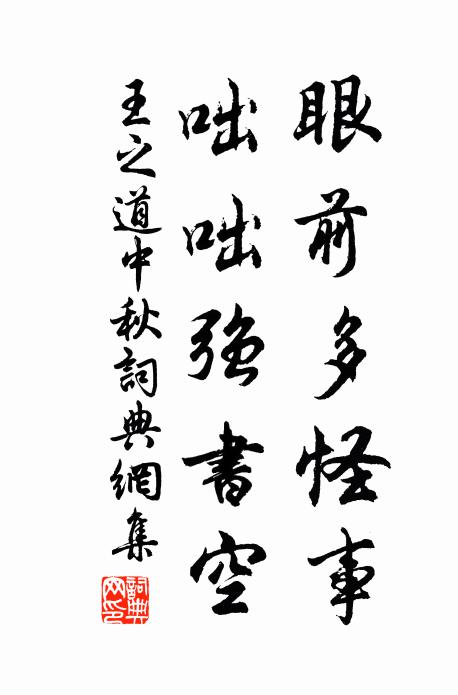 眼前多怪事
咄咄強書空
王之道中秋詞典網集
詞典網印